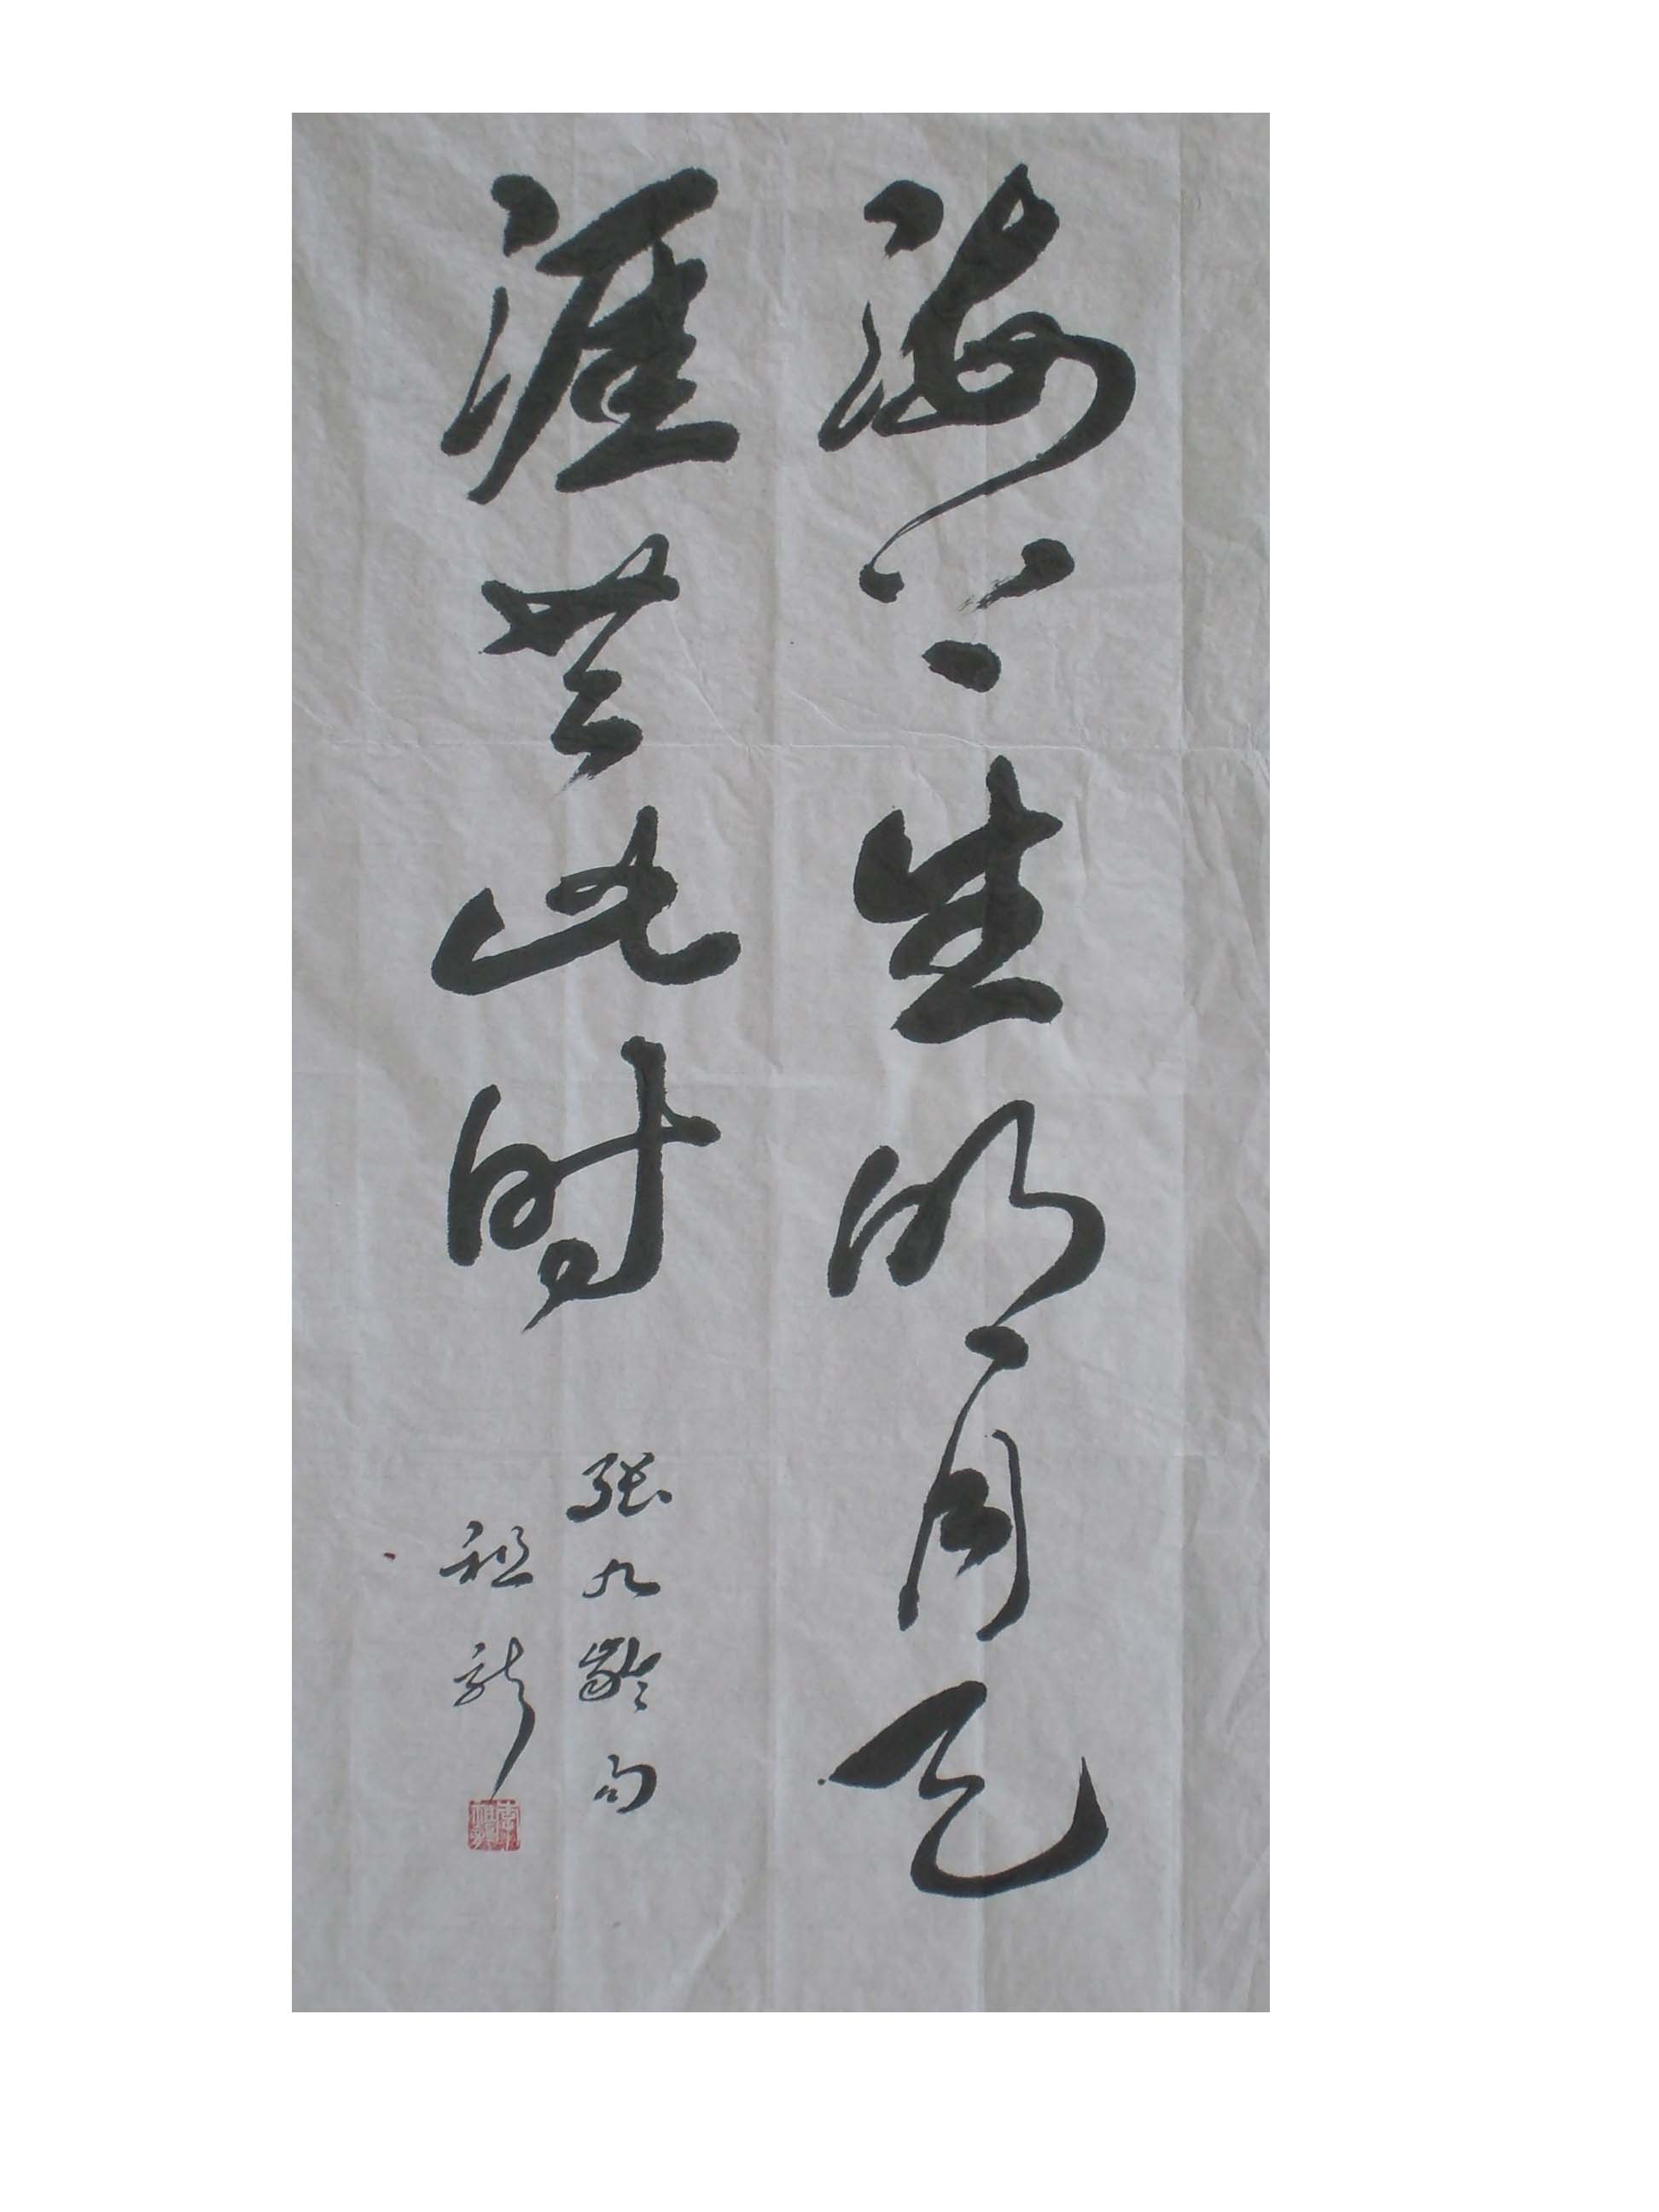 海上生明月天
涯共此时
張九齡句
祖